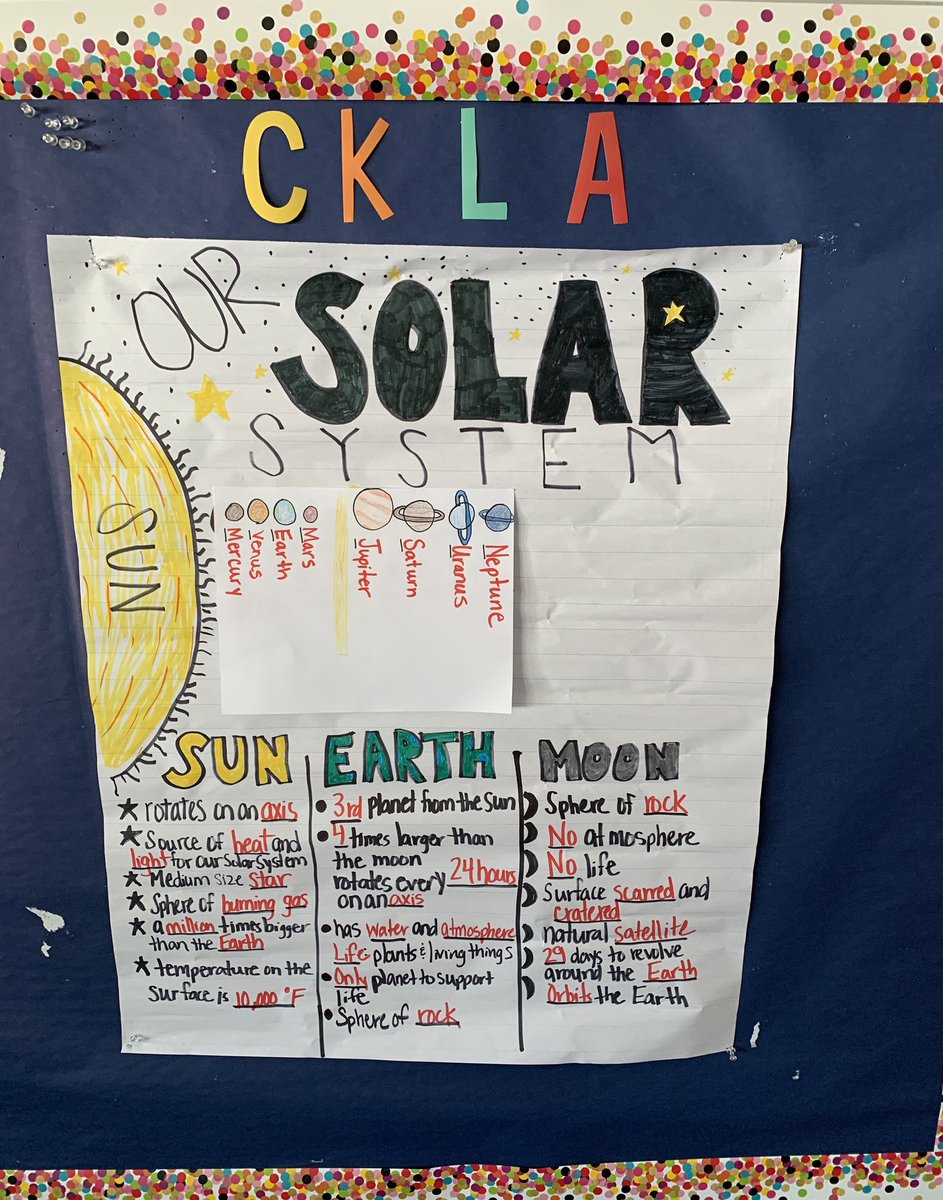 CKLA
OUR
SOLAR
SYSTEM
SUN
Mercury
Venus
Earth
Mars
Jupiter
Saturn
Uranus
Neptune
SUN
rotates on an axis
Source of heat and
light for our Solar System
Medium size star
Sphere of burning gas
a million times bigger
than the Earth
temperature on the
surface is 10,000 °F
EARTH
3rd planet from the Sun
4 times larger than
the moon
rotates every 24 hours
on an axis
has water and atmosphere
Life: plants & living things
Only planet to support
life
Sphere of rock
MOON
Sphere of rock
No atmosphere
No life
Surface scarred and
cratered
natural satellite
29 days to revolve
around the Earth
Orbits the Earth